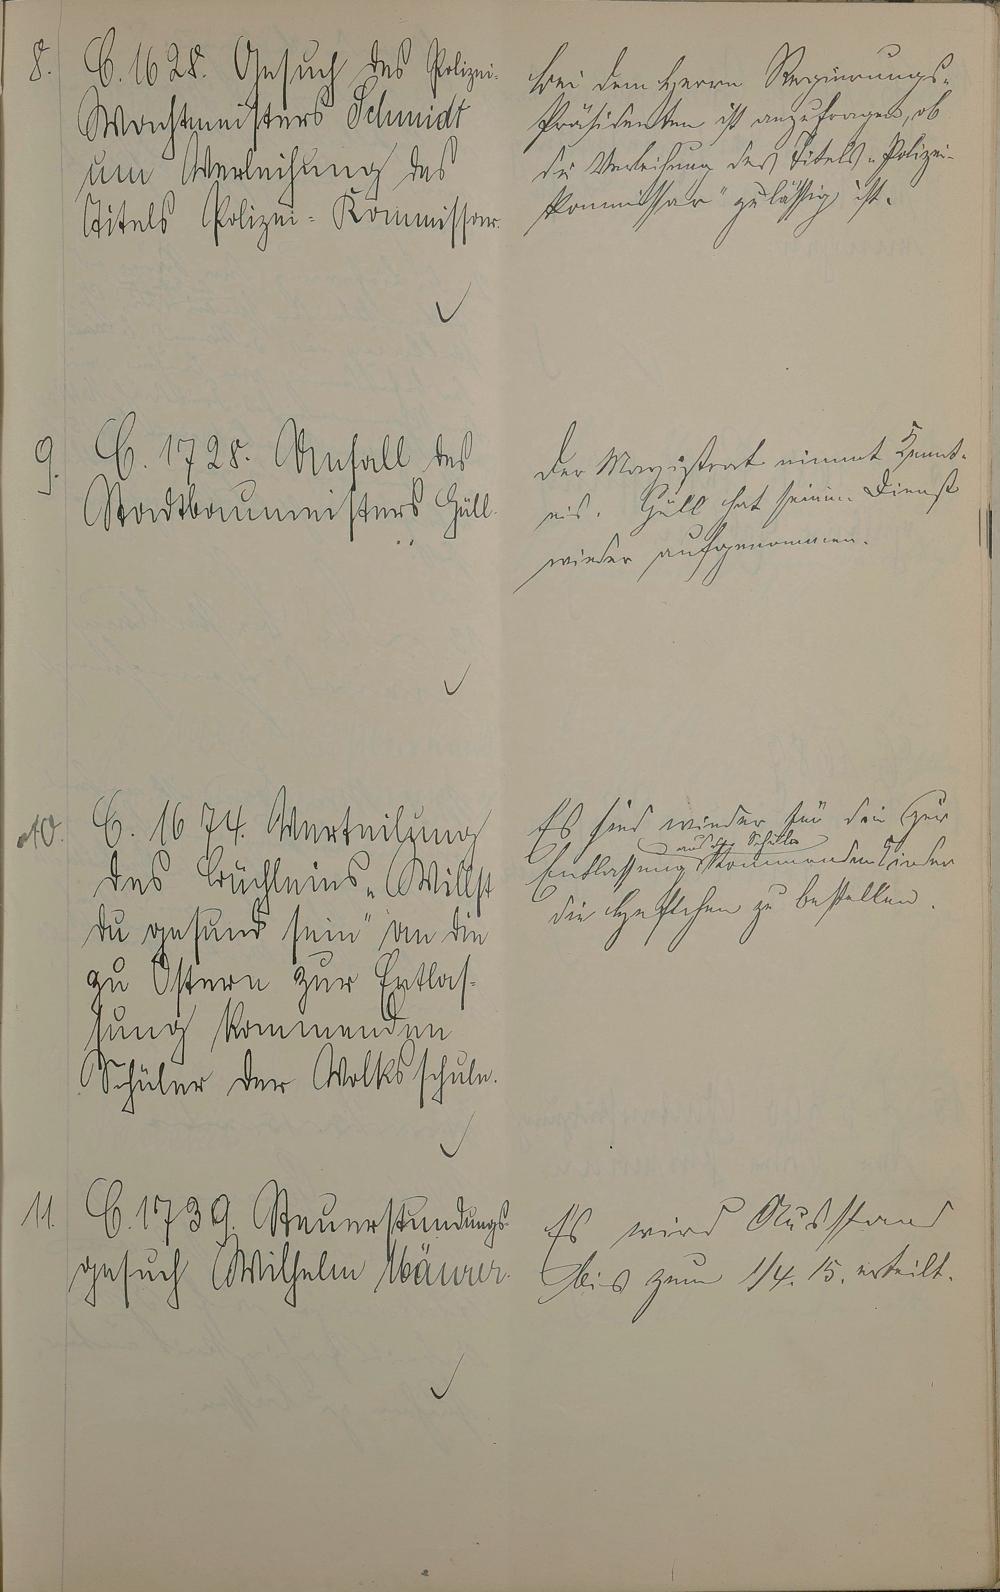 8. C. 1628. Gesuch des Polizei-
Wachtmeisters Schmidt
um Verleihung des
Titels Polizei-Kommissar.
bei dem Herrn Regierungs-
Präsidenten ist anzufragen, ob
die Verleihung des Titels „Polizei-
Kommissar" zulässig ist.
9. C. 1728. Unfall des
Stadtbaumeisters Güll.
Der Magistrat nimmt Kennt-
nis. Güll hat seinen Dienst
wieder aufgenommen.
10. C. 1674. Verteilung
des Büchleins „Willst
du gesund sein" an die
zu Ostern zur Entlas-
sung kommenden
Schüler der Volksschule.
Es sind wieder für die zur
aus der Schule
Entlassung kommenden Kinder
die Heftchen zu bestellen.
11. C. 1739. Steuerstundungs-
gesuch Wilhelm Mäurer.
Es wird Ausstand
bis zum 1/4. 15. erteilt.